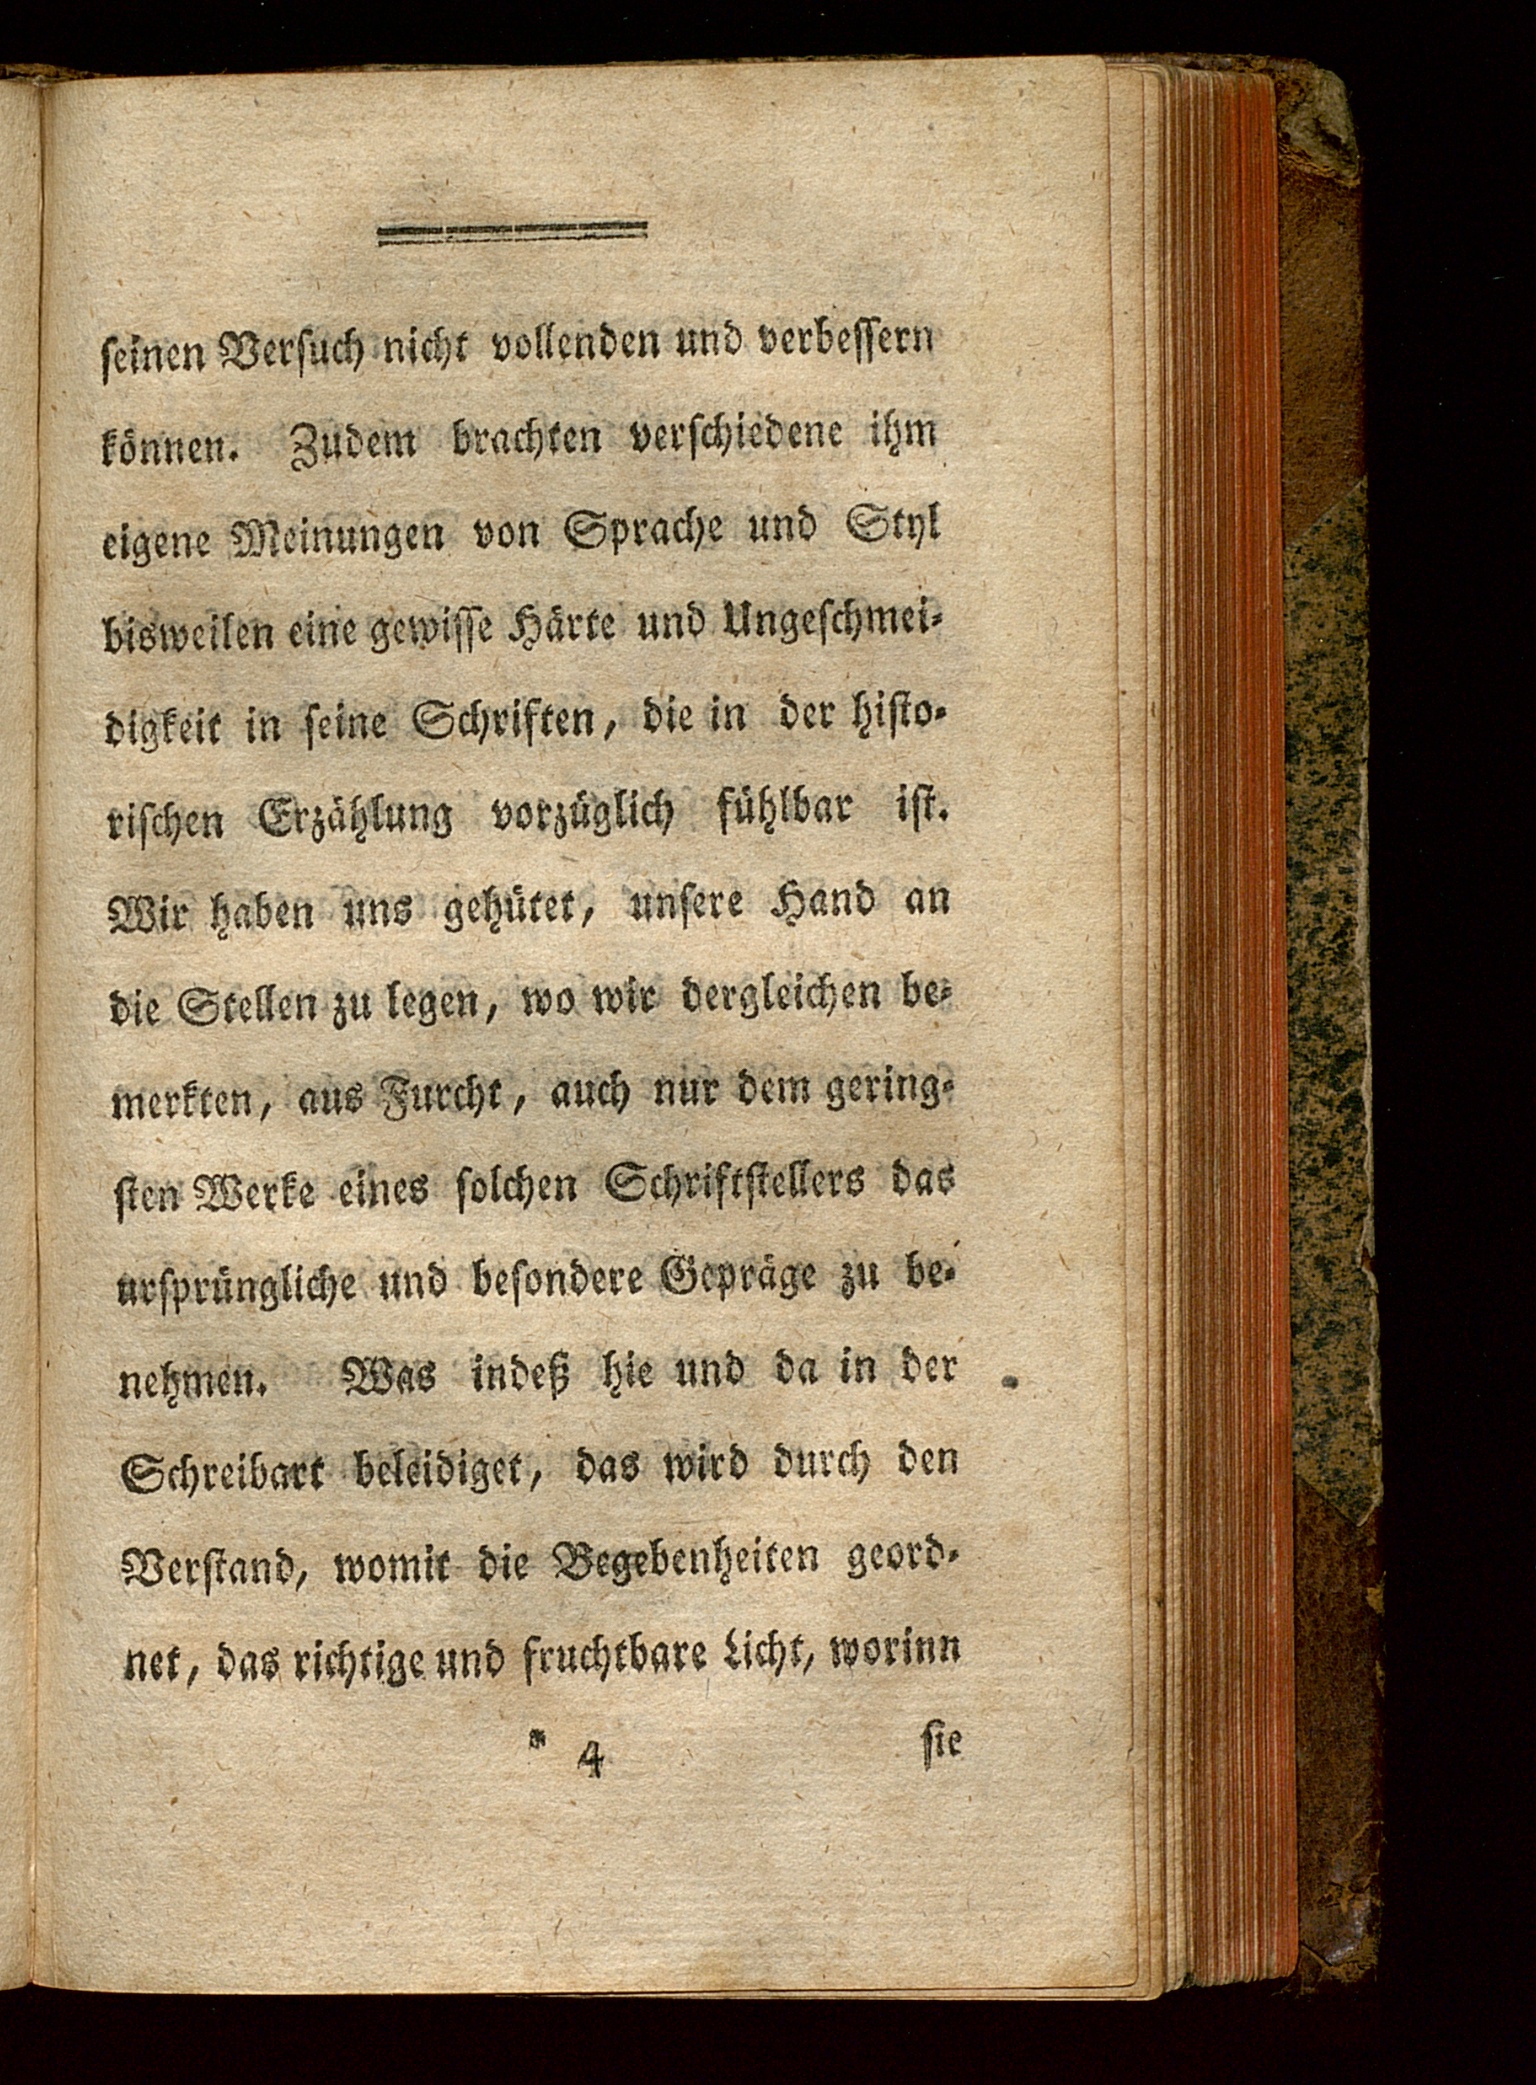 seinen Versuch nicht vollenden und verbessern
können. Zudem brachten verschiedene ihm
eigene Meinungen von Sprache und Styl
bisweilen eine gewisse Härte und Ungeschmei-
digkeit in seine Schriften, die in der histo-
rischen Erzählung vorzüglich fühlbar ist.
Wir haben uns gehütet, unsere Hand an
die Stellen zu legen, wo wir dergleichen be-
merkten, aus Furcht, auch nur dem gering-
sten Werke eines solchen Schriftstellers das
ursprüngliche und besondere Gepräge zu be-
nehmen. Was indeß hie und da in der
Schreibart beleidiget, das wird durch den
Verstand, womit die Begebenheiten geord-
net, das richtige und fruchtbare Licht, worinn
* 4 sie